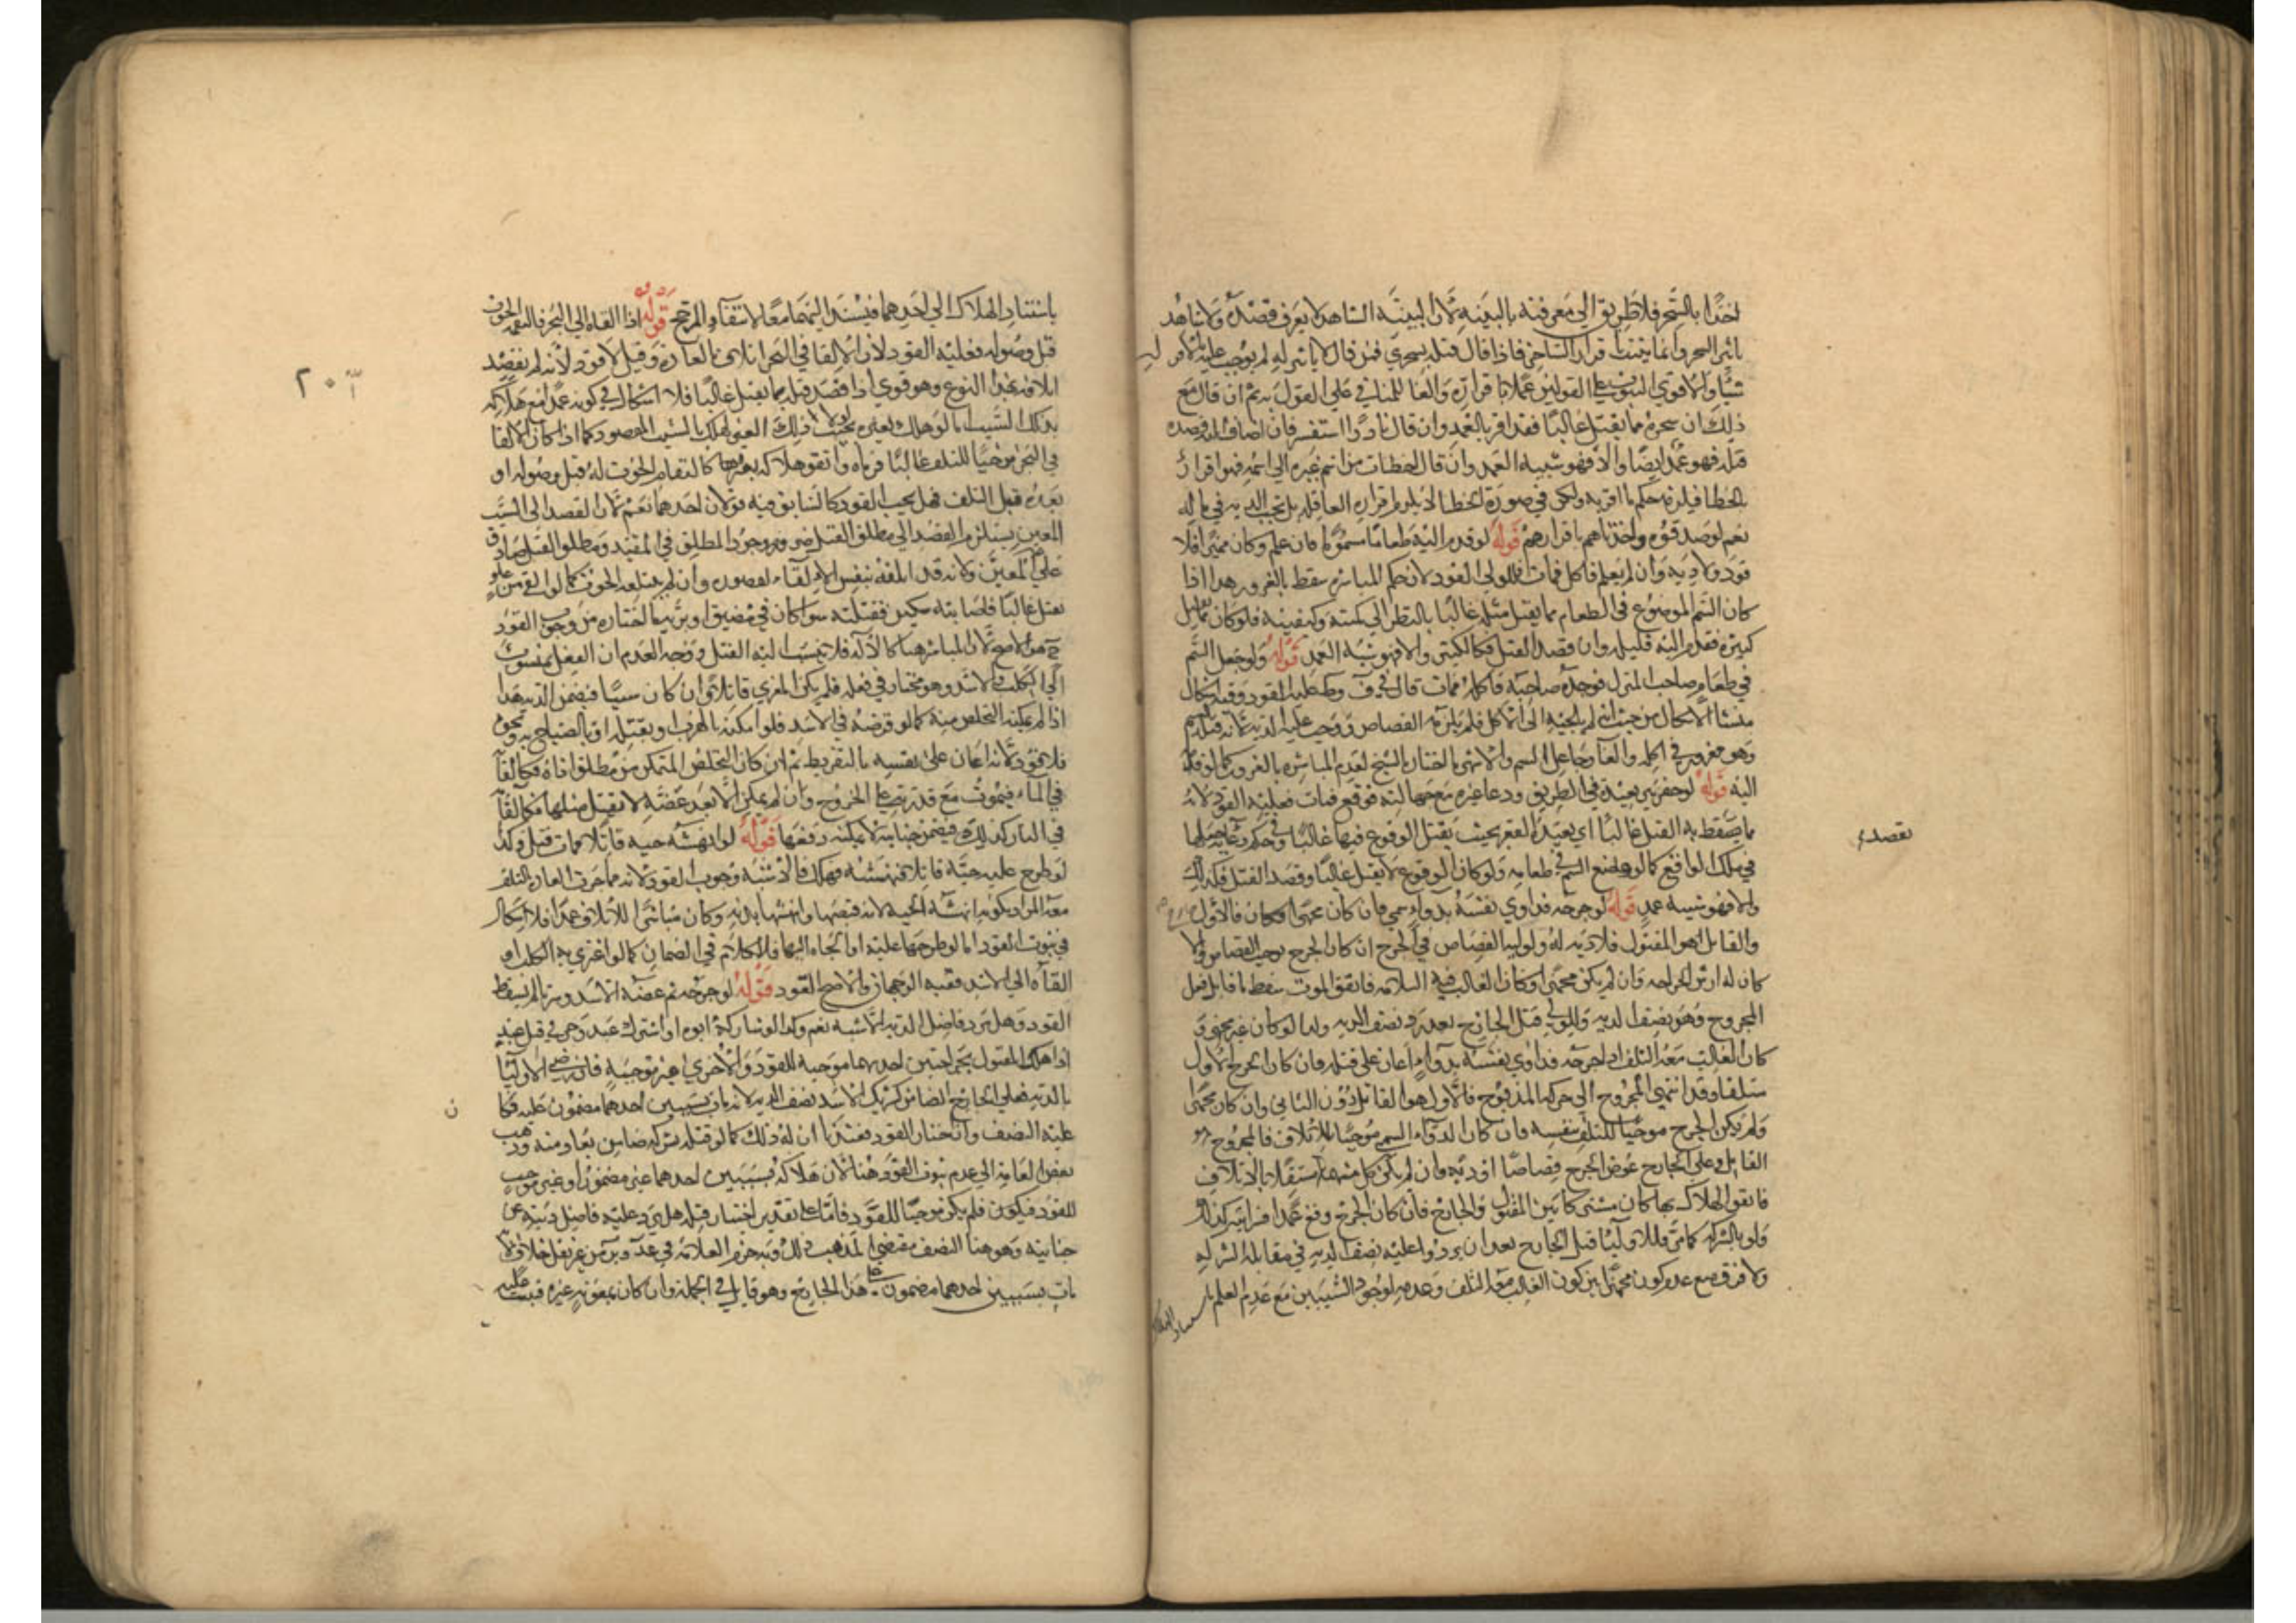 احدا بالسحر فلا طريق الى معرفته بالبينة لان البينة الشاهد لا يعرف قصده ولا يشاهد
تاثير السحر وانما يثبت باقرار الساحر فاذا قال قتلته بسحري فمن قال لا تاثير له لم يوجب عليه بالاقرار
شيئا والاقوى الثبوت على القولين عملا باقراره والغاء للمنافي على القول به ثم ان قال مع
ذلك ان سحره مما يقتل غالبا فقد اقر بالعمد وان قال نادرا استفسر فان اضاف اليه قصده
قتله فهو عمد ايضا والا فهو شبيه العمد وان قال اخطات من اسم غيره الى اسمه فهو اقرار
بالخطا فيلزمه حكم ما اقر به ولكن في صورة الخطا لا يلزم اقراره العاقلة بل تجب الدية في ماله
نعم لو صدقوه واخذناهم باقرارهم قوله لو قدم اليه طعاما مسموما فان علم وكان مميزا فلا
قود ولا دية وان لم يعلم فاكل فمات فللولي القود لان حكم المباشرة سقط بالغرور هذا اذا
كان السم الموضوع في الطعام مما يقتل مثله غالبا بالنظر الى كميته وكيفيته فلو كان مما يقتل
كثيره فقدم اليه قليله وان قصد القتل فكالكثير والا فهو شبه العمد قوله ولو جعل السم
في طعام صاحب المنزل فوجده صاحبه فاكله فمات قال في ف و ط عليه القود وفيه اشكال
منشا الاشكال من حيث انه لم يلجيه الى الاكل فلم يلزمه القصاص ووجب عليه الدية لانه قتله بسم
وهو مغرور في اكله والغار جاعل السم والاشهر ما اختاره الشيخ لعدم المباشرة بالغرور كما لو قدمه
اليه قوله لو حفر بئرا بعيدة في الطريق ودعا غيره مع جهالته فوقع فمات فعليه القود لانه
مما يقصد به القتل غالبا اي بعيدة القعر بحيث يقتل الوقوع فيها غالبا وفي حكمه دعائه
في ملك الواقع كما لو وضع السم في طعامه ولو كان الوقوع لا يقتل غالبا وقصد القتل فكذلك
والا فهو شبيه عمد قوله لو جرحه فداوى نفسه بدواء سمي فان كان مجهزا فالاول
والقاتل هو المقتول فلا دية له ولوليه القصاص في الجرح ان كان الجرح يوجب القصاص والا
كان له ارش الجراحة وان لم يكن مجهزا وكان الغالب فيه السلامة فاتفق الموت سقط ما قابل فعل
المجروح وهو نصف الدية وللولي قتل الجارح بعد رد نصف الدية وكذا لو كان غير مجهز و
كان الغالب معه التلف اذا جرحه فداوى نفسه بدواء اعان على قتله فان كان الجرح الاول
متلفا وقد انتهى المجروح الى حركة المذبوح فالاول هو القاتل دون الثاني وان كان مجهزا
ولم يكن الجرح موحيا للتلف بنفسه فان كان الدواء السمي موحيا للاتلاف فالمجروح هو
القاتل وعلى الجارح عوض الجرح قصاصا او دية وان لم يكن كل منهما مستقلا بالاتلاف
فاتفق الهلاك بهما كان مشتركا بين المقتول والجارح فان كان الجرح وقع عمدا فسرايته كذلك
ولو بالشركة كما مر فللاولياء قتل الجارح بعد ان يردوا عليه نصف الدية في مقابلة الشركة
ولا فرق مع عدم كونه مجهزا بين كون الغالب معه التلف وعدمه لوجود السببين مع عدم العلم
بقصده
باستناد الهلاك الى احدهما فيستند اليهما معا لانتفاء المرجح قوله اذا القاه الى البحر فالتقمه الحوت
قبل وصوله فعليه القود لان الالقاء في البحر اتلاف بالعادة وقيل لا قود لانه لم يقصد
اتلافه بهذا النوع وهو قوي اذا قصد قتله بما يقتل غالبا فلا اشكال في كونه عمدا مع هلاكه
بذلك السبب اما لو هلك بغيره بحيث لولا ذلك الغير لهلك بالسبب المقصود كما اذا كان الالقاء
في البحر موحيا للتلف غالبا فرماه واتفق هلاكه بغيرها كالتقام الحوت له قبل وصوله او
بعده قبل التلف فهل يجب القود كالسابق فيه قولان احدهما نعم لان القصد الى السبب
المعين يستلزم القصد الى مطلق القتل ضرورة وجود المطلق في المقيد ومطلق القتل صادق
على المعين ولانه قد اتلفه بنفس الالقاء لقصوره وان لم يبتلعه الحوت كما لو القي من علو
يقتل غالبا فاصابته سكين فقتلته سوا كان في مضيق او برية ما اختاره من وجوب القود
هو الاصح لان المباشر هنا كالالة فلا ينسب اليه القتل ووجه العدم ان الفعل منسوب
الى الكلب والاسد وهو مختار في فعله فلم يكن المغري قاتلا وان كان سببا فيضمن الدية هذا
اذا لم يمكنه التخلص منه كما لو فرضه في الاسد فلو امكنه بالهرب او بقتله او بالصياح به ونحوه
فلا قود لانه اعان على نفسه بالتفريط ثم ان كان التخلص المتمكن منه مطلق اذاه فكالقائه
في الماء فيموت مع قدرته على الخروج وان لم يمكن الا بعد عضة لا يقتل مثلها فكالقائه
في النار كذلك فيضمن جناية لا يمكنه دفعها قوله لو انهشه حية قاتلا فمات قتل وكذا
لو طرح عليه حية قاتلا فنهشته فهلك فالاشبه وجوب القود لانه مما جرت العادة بالتلف
معه المراد بكونه انهشه الحية لانه قبضها وانهشها بدنه وكان مباشرا للاتلاف عمدا فلا اشكال
في ثبوت القود اما لو طرحها عليه او الجاه اليها فالكلام في الضمان كما لو اغرى به الكلب او
القاه الى الاسد ففيه الوجهان والاصح القود قوله لو جرحه ثم عضه الاسد وسرتا لم يسقط
القود وهل يرد فاضل الدية الاشبه نعم وكذا لو شاركه ابوه او اشترك عبد وحر في قتل عبد
اذا هلك المقتول بجراحتين احدهما موجبة للقود والاخرى غير موجبة فان رضي الاولياء
بالدية فعلى الجارح الضامن كشريك الاسد نصف الدية لانه مات بسببين احدهما مضمون عليه فكان
عليه النصف وان اختار القود فعندنا ان له ذلك كما لو قتله بشركة ضامن يقاد منه وذهب
بعض العامة الى عدم ثبوت القود هنا لان هلاكه بسببين احدهما غير مضمون او غير موجب
للقود فيكون فلم يكن موجبا للقود فاما على تقدير اختيار قتله هل يرد عليه فاضل ديته عن
جنايته وهو هنا النصف مقتضى المذهب ذلك وبه جزم العلامة في عد و ير من غير نقل خلاف لانه
مات بسببين احدهما مضمون على هذا الجارح وهو قايل في الجملة وان كان بمعونة غيره فيثبت عليه
٢٠١